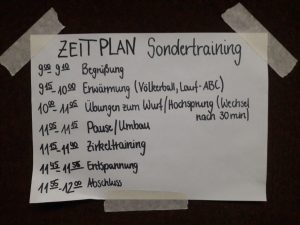 ZEITPLAN Sondertraining
9⁰⁰-9¹⁰ Begrüßung
9¹⁵-10⁰⁰ Erwärmung (Völkerball, Lauf-ABC)
10⁰⁰-11⁰⁵ Übungen zum Wurf/Hochsprung (Wechsel
nach 30min)
11⁰⁵-11¹⁵ Pause/Umbau
11¹⁵-11⁴⁰ Zirkeltraining
11⁴⁵-11⁵⁵ Entspannung
11⁵⁵-12⁰⁰ Abschluss